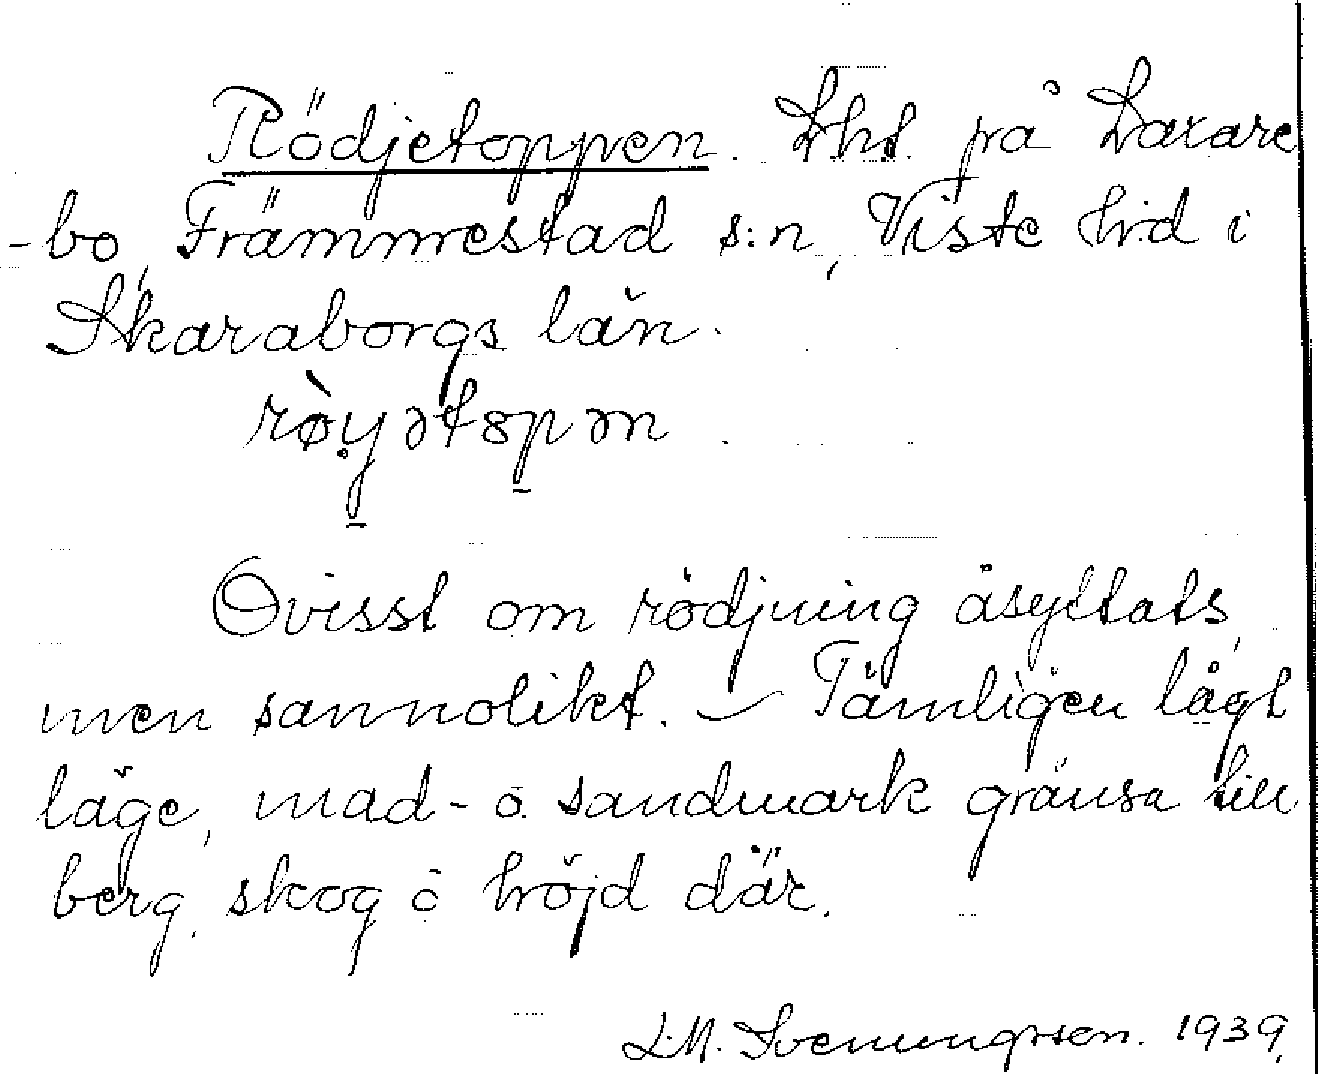 Rödjetoppen. Lht. på Laxare
-bo, Främmestad s:n, Viste hrd i
Skaraborgs län.
Ovisst om rödjning åsyftats,
men sannolikt. – Tämligen lågt
läge, mad- o. sandmark gränsa till
berg, skog o höjd där.
L.M. Svenungsson. 1939.